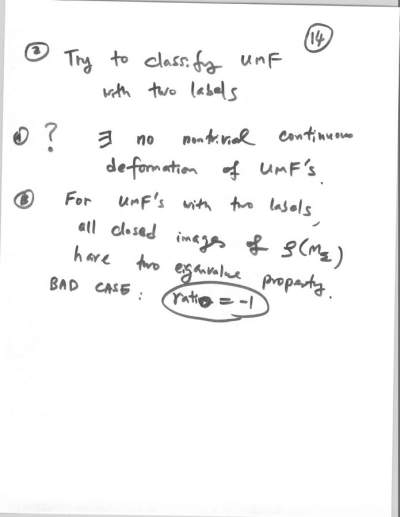 14
② Try to classify UMF
with two labels
? ∃ no nontrivial continuous
deformation of UMF's.
For UMF's with two labels,
all closed images of ρ(M_Σ)
have two eigenvalue property.
BAD CASE: ratio = -1